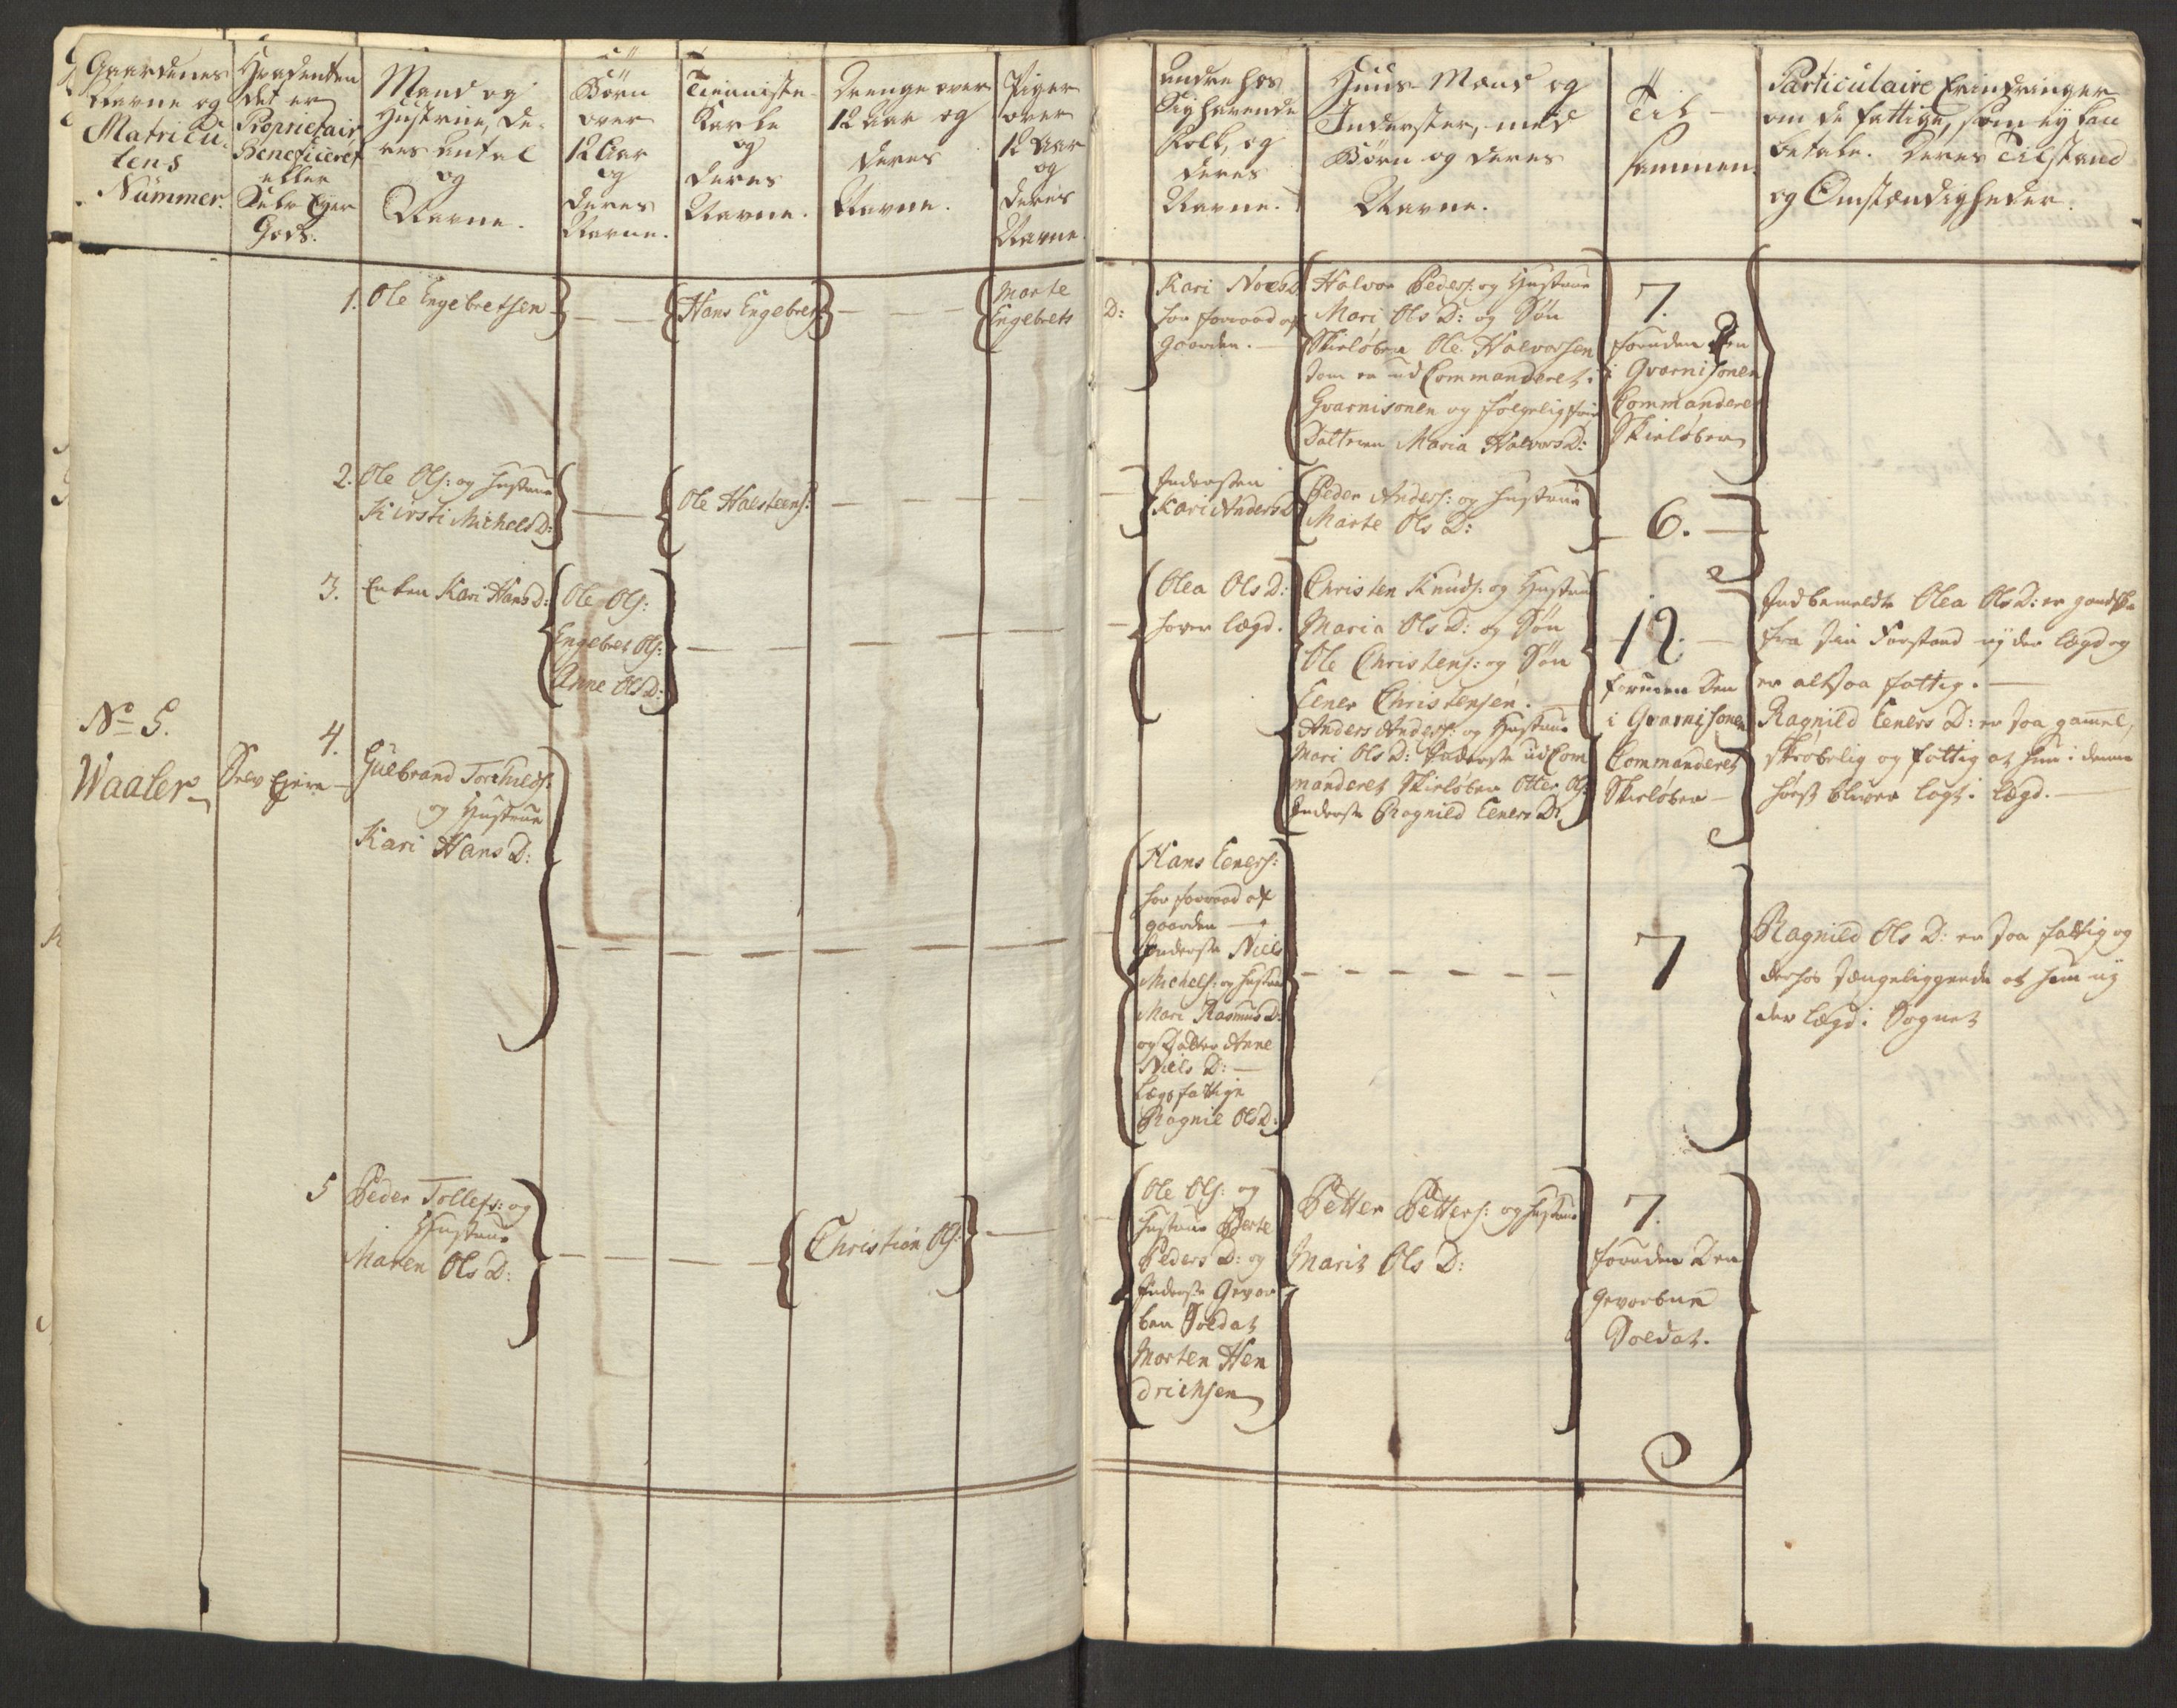 Gaardenes
Navne og
Matricu-
lens
Nummer.
Hvadenten
det er
Proprietair
Beneficeret
eller
Selv Eyer
Gods.
Mand og
Hustrue, de-
res Antal
og
Navne.
Börn
over
12 Aar
og
deres
Navne.
Tienniste-
Karle
og
deres
Navne.
Drenge over
12 Aar og
deres
Navne.
Piger
over
12 Aar
og
deres
Navne.
Andre hos
Sig havende
Folk, og
deres
Navne.
Huus-Mænd og
Inderster, med
Börn og deres
Navne.
Til-
sammen.
Particulaire Erindringer
om de fattige, som ey kan
betale. Deres Tilstand
og Omstændigheder.
1. Ole Engebretsen
Hans Engebrets:
Marte
Engebrets
D:
Kari Noes D
har forraad af
gaarden.
Halvor Peders: og Hustrue
Mari Ols D: og Søn
Skieløber Ole Halvorsen
som er ud Commanderet i
Gvarnisonen og følgelig frie
Dattren Maria Halvors D:
7.
foruden Den
i Gvarnisonen
Commanderet
Skieløber
2. Ole Ols: og Hustrue
Kirsti Michels D:
Ole Halsteens:
Indersten
Kari Anders D
Peder Anders: og Hustrue
Marte Ols D:
6.
3. Enken Kari Hans D:
Ole Ols:
Engebret Ols:
Anne Ols D:
Olea Ols D:
haver lægd.
Christen Knuds: og Hustrue
Maria Ols D: og Søn
Ole Christens: og Søn
Eener Christensen.
Anders Anders: og Hustrue
Mari Ols D: Inderste ud Com
manderet Skieløber Otter Ols:
Inderste Ragnild Eeners D:
12.
foruden Den
i Gvarnisonen
Commanderet
Skieløber
Indbemeldte Olea Ols D: er gandske
fra sin Forstand nyder lægd og
er altsaa fattig.
Ragnild Eeners D: er saa gammel,
skrøbelig og fattig at hun i denne
høst bliver lagt i lægd.
No 5.
Waaler
Selv Eyere
4.
Gulbrand Torchilds:
og Hustrue
Kari Hans D:
Hans Eeners:
har forraad af
gaarden
Inderste Niels
Michels: og Hustrue
Mari Rasmus D:
og Datter Anne
Niels D:
Lægdfattige
Ragnil Ols D:
7
Ragnild Ols D: er saa fattig og
derhos sængeliggende at hun ny
der lægd i Sognet
5 Peder Tollefs: og
Hustrue
Maren Ols D:
Christian Ols:
Ole Ols: og
Hustrue Berte
Peders D: og
Inderste Gevor
ben Soldat
Morten Hen
drichsen
Petter Petters: og Hustrue
Marit Ols D:
7.
foruden Den
Gevorbne
Soldat.